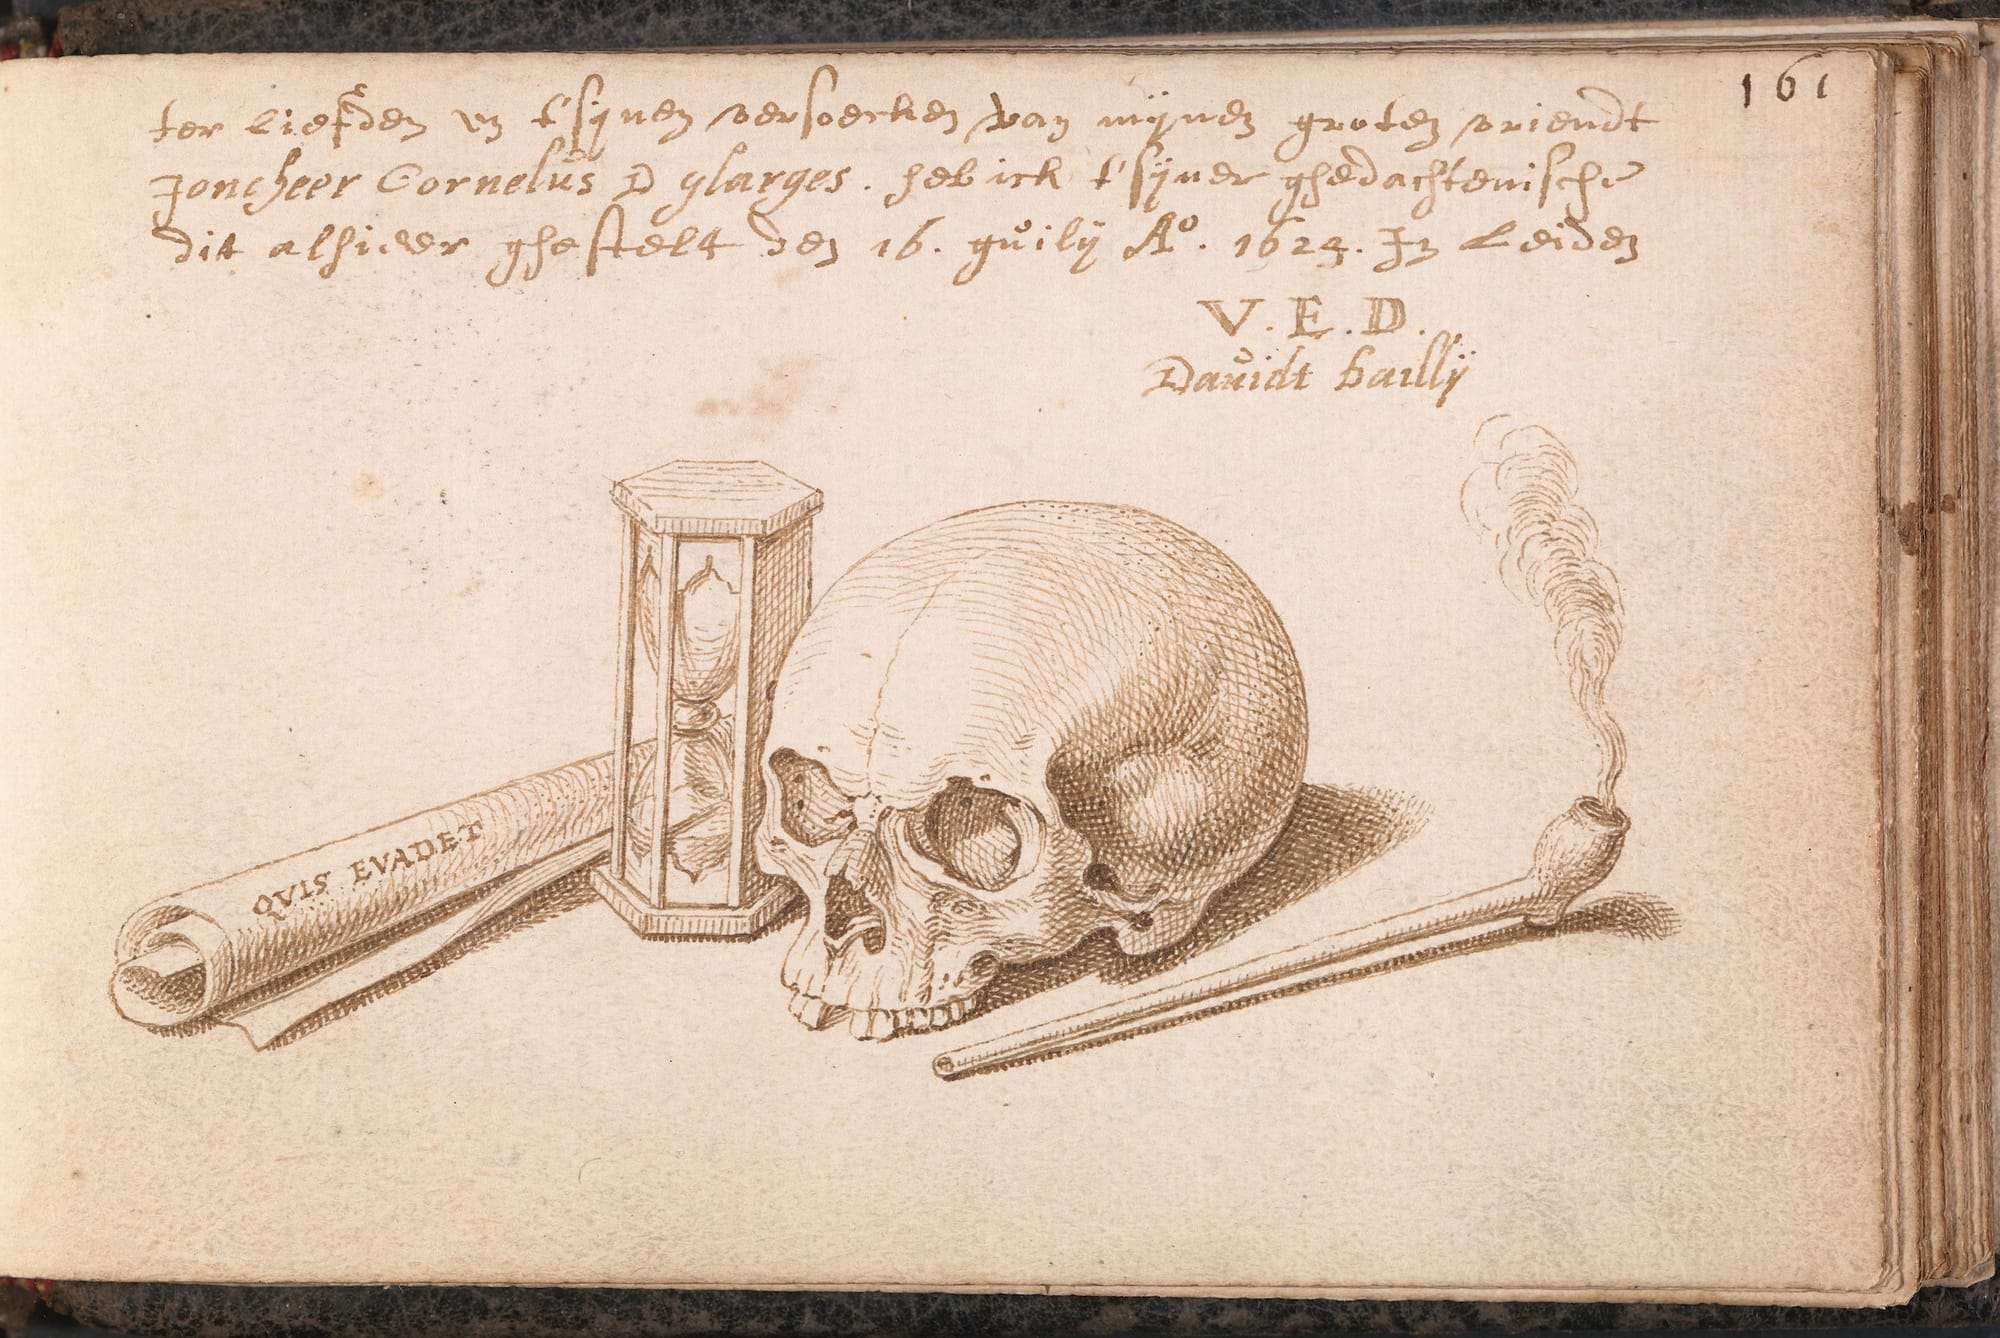 161
ter liefden en t'sijnen versoecken van mijnen groten vriendt
Joncheer Cornelus D glarges. heb ick t'sijner ghedachtenissche
dit alhier ghestelt den 16. guilij Aº. 1624. In Leiden
V. E. D.
Davidt bailly
QVIS EVADET